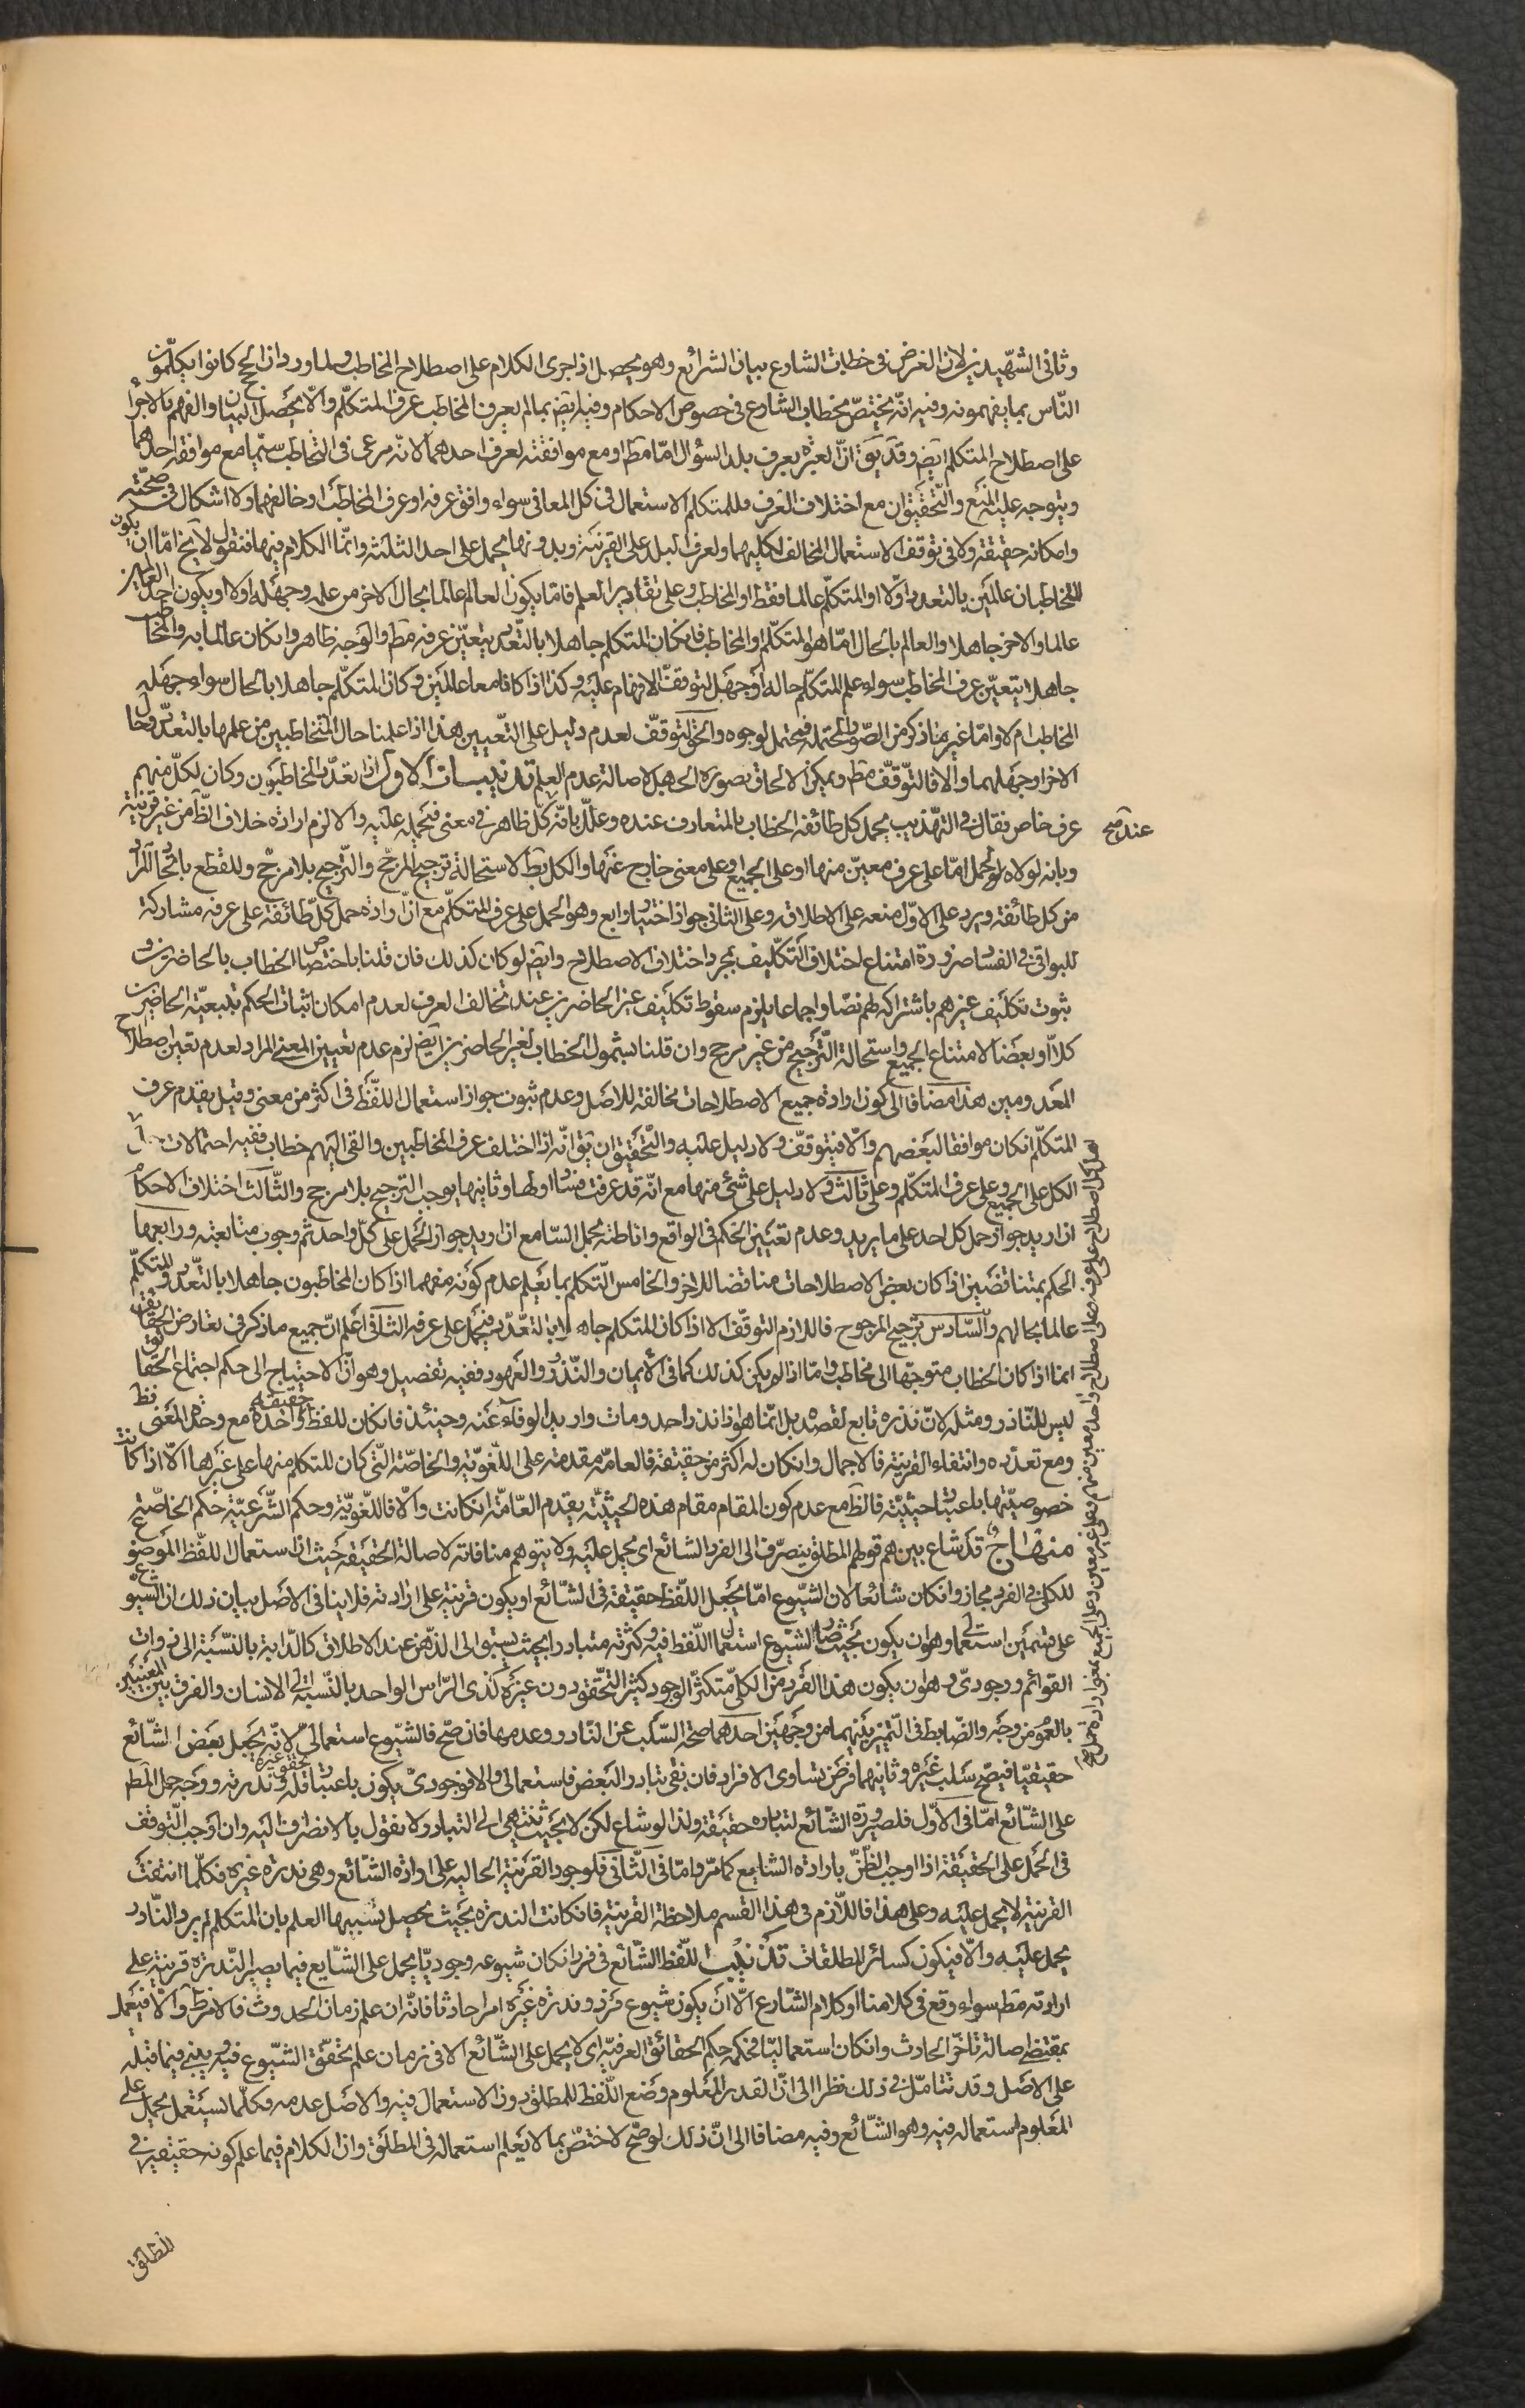 وثانى الشهيدين لان الغرض فى خطابات الشارع بيان الشرائع وهو يحصل اذا جرى الكلام على اصطلاح المخاطب ولما ورد ان الحجج كانوا يكلّمون
النّاس بما يفهمونه وفيه انّه يختصّ بخطاب الشارع فى خصوص الاحكام وفيه ايض بما لم يعرف المخاطب عرف المتكلّم والّا يحصل البيان والفهم بالاجراء
على اصطلاح المتكلم ايض وقد يق انّ العبرة بعرف بلد السؤال امّا مط او مع موافقته لعرف احدهما لانّه مرعى فى التخاطب سيّما مع موافقة احدهما
ويتوجه عليه المنع والتّحقيق ان مع اختلاف العرف فللمتكلم الاستعمال فى كل المعانى سواء وافق عرفه او عرف المخاطب او خالفهما ولا اشكال فى صحّته
وامكانه حقيقة ولا فى توقف الاستعمال المخالف لكليهما ولعرف البلد على القرينة وبدونها يحمل على احد الثلثة وانّما الكلام فيها فنقول لا يخ امّا ان يكون
المخاطبان عالمين بالتعدد اولا او المتكلّم عالما فقط او المخاطب وعلى تقادير العلم فامّا يكون العالم عالما بحال الاخر من علمه وجهله او لا او يكون احد العالمين
عالما والاخر جاهلا والعالم بالحال امّا هو المتكلّم او المخاطب فان كان المتكلم جاهلا بالتّعدّد يتعيّن عرفه مط والوجه ظاهر وان كان عالما به والمخاطب
جاهلا يتعيّن عرف المخاطب سواء علم المتكلّم حاله او جهل لتوقف الافهام عليه وكذا اذا كانا معا عالمين وكان المتكلّم جاهلا بالحال سواء جهله
المخاطب ام لا وامّا غير ما ذكر من الصّور المحتملة فيحتمل لوجوه والحقّ التوقّف لعدم دليل على التّعيين هذا اذا علمنا حال المتخاطبين من علمها بالتعدّد وحال
الاخر او جهلهما والّا فالتّوقّف مط ويمكن الالحاق بصورة الجهل لاصالة عدم العلم تذنيبات الاول اذا تعدّد المخاطبون وكان لكلّ منهم
عرف خاص فقال فى التهذيب يحمل كل طائفة الخطاب بالمتعارف عنده وعلّل بانّه كلّ ظاهر فى معنى فيحمله عليه والّا لزم ارادة خلاف الظّ من غير قرينة
وبانه لولاه لحمل امّا على عرف معيّن منها او على الجميع او على معنى خارج عنها والكل بط لاستحالة ترجيح المرجّح والتّرجيح بلا مرجّح وللقطع باتّحاد المراد
من كل طائفة ويرد على الاوّل منعه على الاطلاق وعلى الثانى جواز اختيار رابع وهو الحمل على عرف المتكلّم مع انّ ارادة حمل كلّ طائفة على عرفه مشاركة
للبواقى فى الفساد ضرورة امتناع اختلاف التكليف بمجرد اختلاف الاصطلاح وايض لو كان كذلك فان قلنا باختصاص الخطاب بالحاضرين و
ثبوت تكليف غيرهم باشتراكه لهم نصّا واجماعا يلزم سقوط تكليف غير الحاضرين عند تخالف العرف لعدم امكان اثبات الحكم بتبعيّة الحاضرين
كلّا او بعضا لامتناع الجميع واستحالة التّرجيح من غير مرجح وان قلنا بشمول الخطاب لغير الحاضرين ايض لزم عدم تعيين المعنى المراد لعدم تعيّن اصطلاح
المعدومين هذا مضافا الى كون ارادة جميع الاصطلاحات مخالفة للاصل وعدم ثبوت جواز استعمال اللّفظ فى اكثر من معنى وقيل يقدم عرف
المتكلّم ان كان موافقا لبعضهم والّا فيتوقّف ولا دليل عليه والتّحقيق ان يق انّه اذا اختلف عرف المخاطبين والقى اليهم خطاب ففيه احتمالات
الكل على الجميع وعلى عرف المتكلّم وعلى ثالث ولا دليل على شئ منها مع انّه قد عرفت فساد اولها وثانيها يوجب الترجيح بلا مرجح والثّالث اختلاف الاحكام
ان اريد جواز حمل كل احد على ما يريد وعدم تعيين الحكم فى الواقع واناطته بحمل السّامع ان اريد جواز الحمل على كلّ واحد ثم وجوب متابعته ورابعها
الحكم بمتناقضين اذا كان بعض الاصطلاحات مناقضا للاخر والخامس التّكلم بما يعلم عدم كونه مفهما اذا كان المخاطبون جاهلا بالتّعدّد والمتكلّم
عالما بحالهم والسّادس ترجيح المرجوح فاللازم التوقّف الا اذا كان المتكلم جاهلا بالتعدّد فيحمل على عرفه الثانى اعلم انّ جميع ما ذكر فى تعارض الحقايق
انما اذا كان الخطاب متوجّها الى مخاطب وامّا اذا لم يكن كذلك كما فى الايمان والنّذور والعهود ففيه تفصيل وهو انّ الاحتياج الى حكم اجتماع الحقايق
ليس للنّاذر ومثله لانّ نذره تابع لقصده بل انّما هو اذا نذر احد ومات واريد الوفاء عنه وحينئذ فان كان للفظ حقيقة واحدة مع وحدة المعنى فظ
ومع تعدّده وانتفاء القرينة فالاجمال وان كان له اكثر من حقيقة فالعامّة مقدمة على اللّغويّة والخاصّة الّتى كان للمتكلم منها على غيرها الّا اذا كانت
خصوصيّتها باعتبار حيثيّة فالظّ مع عدم كون المقام مقام هذه الحيثيّة يقدم العامّة ان كانت والّا فاللّغويّة وحكم الشّرعيّة حكم الخاصّة
منهاج قد شاع بينهم قولهم المطلق ينصرف الى الفرد الشائع اى يحمل عليه ولا يتوهم منافاته لاصالة الحقيقة حيث انّ استعمال اللّفظ الموضوع
للكلى فى الفرد مجاز وان كان شائعا لان الشّيوع امّا يجعل اللّفظ حقيقة فى الشّائع او يكون قرينة على ارادته فلا ينافى الاصل بيان ذلك ان الشيوع
على قسمين استعمالى وهو ان يكون بحيث صار لشيوع استعمال اللّفظ فيه وكثرته متبادرا بحيث يسبق الى الذّهن عند الاطلاق كالدّابة بالنّسبة الى ذوات
القوائم ووجودىّ وهو ان يكون هذا الفرد من الكلى متكثّر الوجود كثير التّحقّق دون غيره كذى الرّاس الواحد بالنّسبة الى الانسان والفرق بين المعنيين
بالعموم من وجه والضّابط فى التّميز بينهما من وجهين احدهما صحّة السّلب عن النّادر وعدمها فان صّح فالشّيوع استعمالىّ لانّه يجعل بعض الشّائع
حقيقيّا فيصّح سلب غيره وثانيهما فرض تساوى الافراد فان بقى تبادر البعض فاستعمالى والا فوجودىّ يكون باعتبار قلّة تحقق غيره وندرته ووجه حمل المطلق
على الشّائع امّا فى الاوّل فلصيرورة الشّائع لتبادره حقيقة ولذا لو شاع لكن لا بحيث ينتهى الى التبادر ولا نقول بالانصراف اليه وان اوجب التّوقف
فى الحمل على الحقيقة اذا اوجب الظّنّ بارادة الشّايع كما مرّ وامّا فى الثّانى فلوجود القرينة الحالية على ارادة الشّائع وهى ندرة غيره فكلّما انتفت
القرينة لا يحمل عليه وعلى هذا فاللّازم فى هذا القسم ملاحظة القرينة فان كانت الندرة بحيث يحصل بسببها العلم بان المتكلم لم يرد النّادر
يحمل عليه والّا فيكون كسائر المطلقات تذنيب اللّفظ الشّائع فى فرد ان كان شيوعه وجوديّا يحمل على الشّايع فيما يصير النّدرة قرينة على
ارادته مط سواء وقع فى كلامنا او كلام الشّارع الّا ان يكون شيوع فرد وندرة غيره امرا حادثا فانّه ان علم زمان الحدوث فالامر ظ والّا فيعمل
بمقتضى اصالة تاخّر الحادث وان كان استعماليّا فحكمه حكم الحقائق العرفيّة اى لا يحمل على الشّائع الا فى زمان علم تحقّق الشّيوع فيه ويبنى فيما قبله
على الاصل وقد نتامّل فى ذلك نظرا الى انّ القدر المعلوم وضع اللّفظ للمطلق دون الاستعمال فيه والاصل عدمه فكلّما يستعمل يحمل على
المعلوم استعماله فيه وهو الشّائع وفيه مضافا الى انّ ذلك لو صّح لاختصّ بما لا يعلم استعماله فى المطلق وان الكلام فيما علم كونه حقيقة فى
المطلق
عنده صح